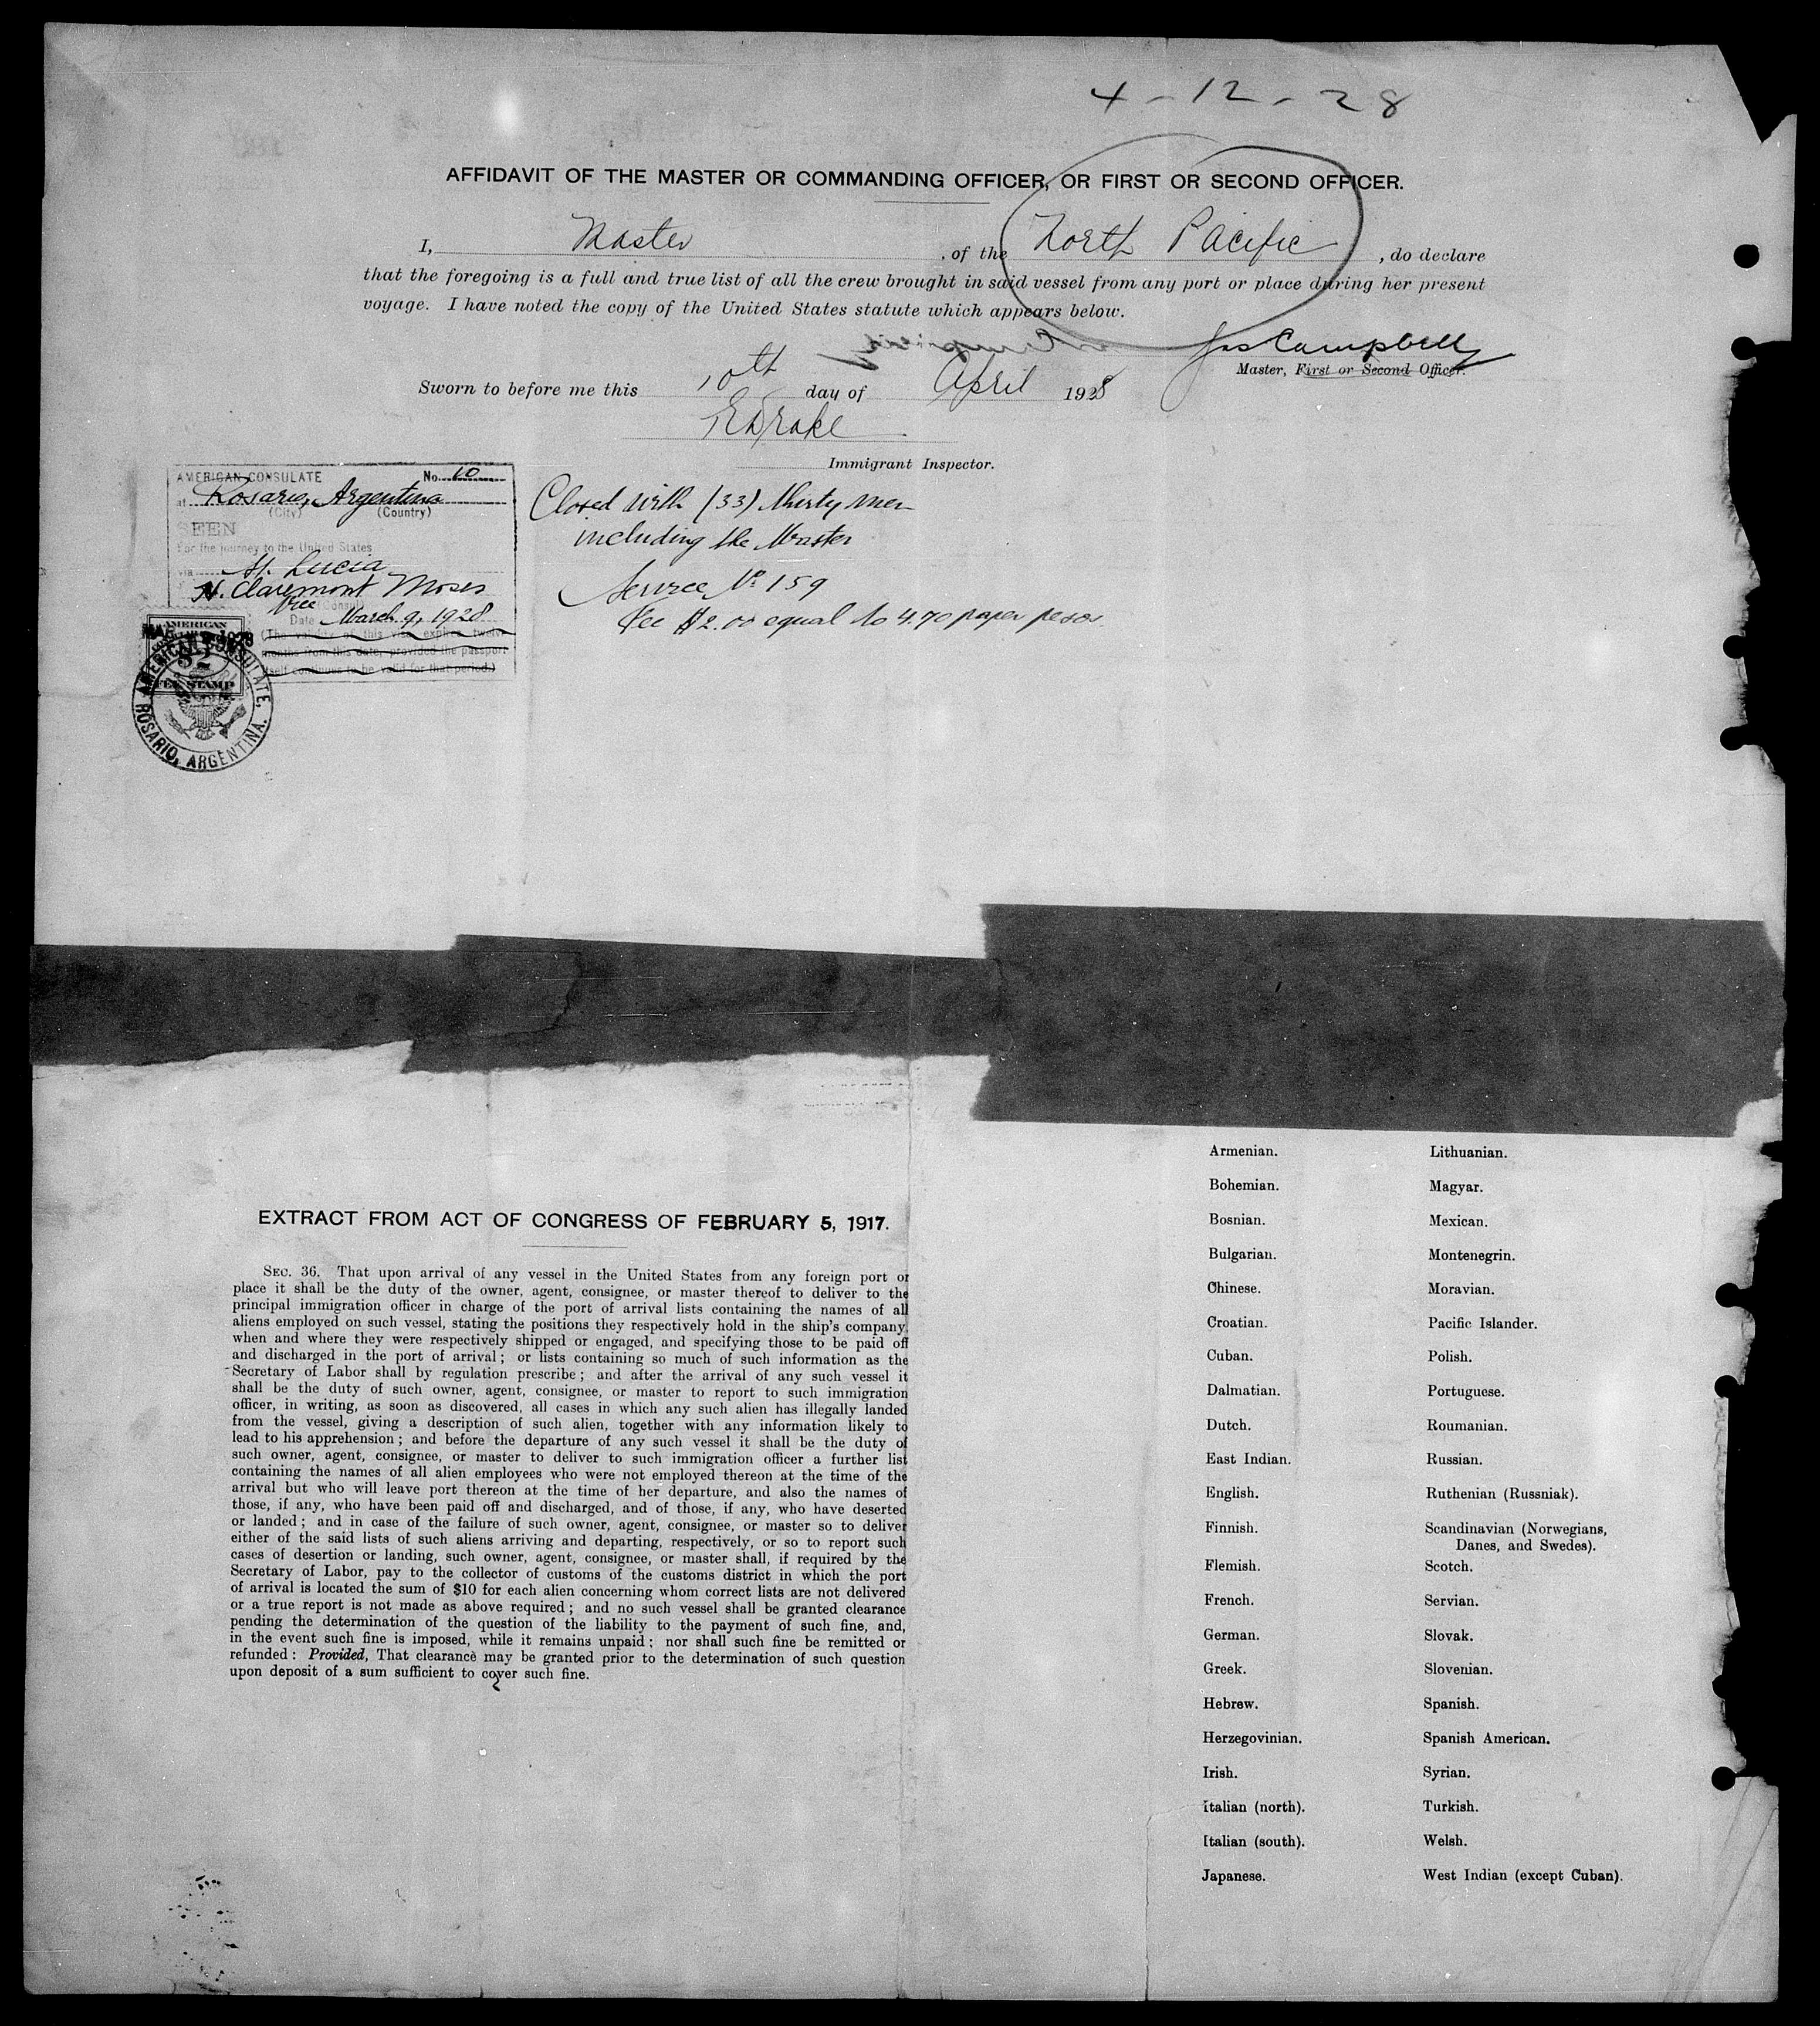 4-12-28
AFFIDAVIT OF THE MASTER OR COMMANDING OFFICER, OR FIRST OR SECOND OFFICER.
I, Master, of the North Pacific, do declare
that the foregoing is a full and true list of all the crew brought in said vessel from any port or place during her present
voyage. I have noted the copy of the United States statute which appears below.
Jas Campbell
Master, First or Second Officer.
Sworn to before me this 10th day of April 1928
Drake
Immigrant Inspector.
AMERICAN CONSULATE No. 10
at Rosario, Argentina
(City) (Country)
SEEN
For the journey to the United States
via St. Lucia
H. Claremont Moses
Vice Consul
Date March 9, 1928
(The validity of this visa expires twelve
months from this date, provided the passport
itself continues to be valid for that period.)
AMERICAN
$2
FEE STAMP
AMERICAN CONSULATE,
ROSARIO, ARGENTINA.
Closed with (33) thirty men
including the Master
Service No 159
Fee $2.00 equal to 4.70 paper pesos
EXTRACT FROM ACT OF CONGRESS OF FEBRUARY 5, 1917.
SEC. 36. That upon arrival of any vessel in the United States from any foreign port or
place it shall be the duty of the owner, agent, consignee, or master thereof to deliver to the
principal immigration officer in charge of the port of arrival lists containing the names of all
aliens employed on such vessel, stating the positions they respectively hold in the ship's company,
when and where they were respectively shipped or engaged, and specifying those to be paid off
and discharged in the port of arrival; or lists containing so much of such information as the
Secretary of Labor shall by regulation prescribe; and after the arrival of any such vessel it
shall be the duty of such owner, agent, consignee, or master to report to such immigration
officer, in writing, as soon as discovered, all cases in which any such alien has illegally landed
from the vessel, giving a description of such alien, together with any information likely to
lead to his apprehension; and before the departure of any such vessel it shall be the duty of
such owner, agent, consignee, or master to deliver to such immigration officer a further list
containing the names of all alien employees who were not employed thereon at the time of the
arrival but who will leave port thereon at the time of her departure, and also the names of
those, if any, who have been paid off and discharged, and of those, if any, who have deserted
or landed; and in case of the failure of such owner, agent, consignee, or master so to deliver
either of the said lists of such aliens arriving and departing, respectively, or so to report such
cases of desertion or landing, such owner, agent, consignee, or master shall, if required by the
Secretary of Labor, pay to the collector of customs of the customs district in which the port
of arrival is located the sum of $10 for each alien concerning whom correct lists are not delivered
or a true report is not made as above required; and no such vessel shall be granted clearance
pending the determination of the question of the liability to the payment of such fine, and,
in the event such fine is imposed, while it remains unpaid; nor shall such fine be remitted or
refunded: Provided, That clearance may be granted prior to the determination of such question
upon deposit of a sum sufficient to cover such fine.
Armenian. Lithuanian.
Bohemian. Magyar.
Bosnian. Mexican.
Bulgarian. Montenegrin.
Chinese. Moravian.
Croatian. Pacific Islander.
Cuban. Polish.
Dalmatian. Portuguese.
Dutch. Roumanian.
East Indian. Russian.
English. Ruthenian (Russniak).
Finnish. Scandinavian (Norwegians,
Danes, and Swedes).
Flemish. Scotch.
French. Servian.
German. Slovak.
Greek. Slovenian.
Hebrew. Spanish.
Herzegovinian. Spanish American.
Irish. Syrian.
Italian (north). Turkish.
Italian (south). Welsh.
Japanese. West Indian (except Cuban).